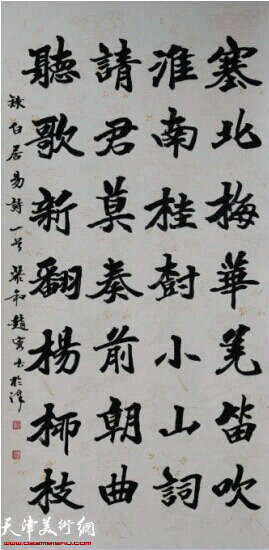 塞北梅華羌笛吹
淮南桂樹小山詞
請君莫奏前朝曲
聽歌新翻楊柳枝
錄白居易詩一首
趙寅書於津
天津美術網